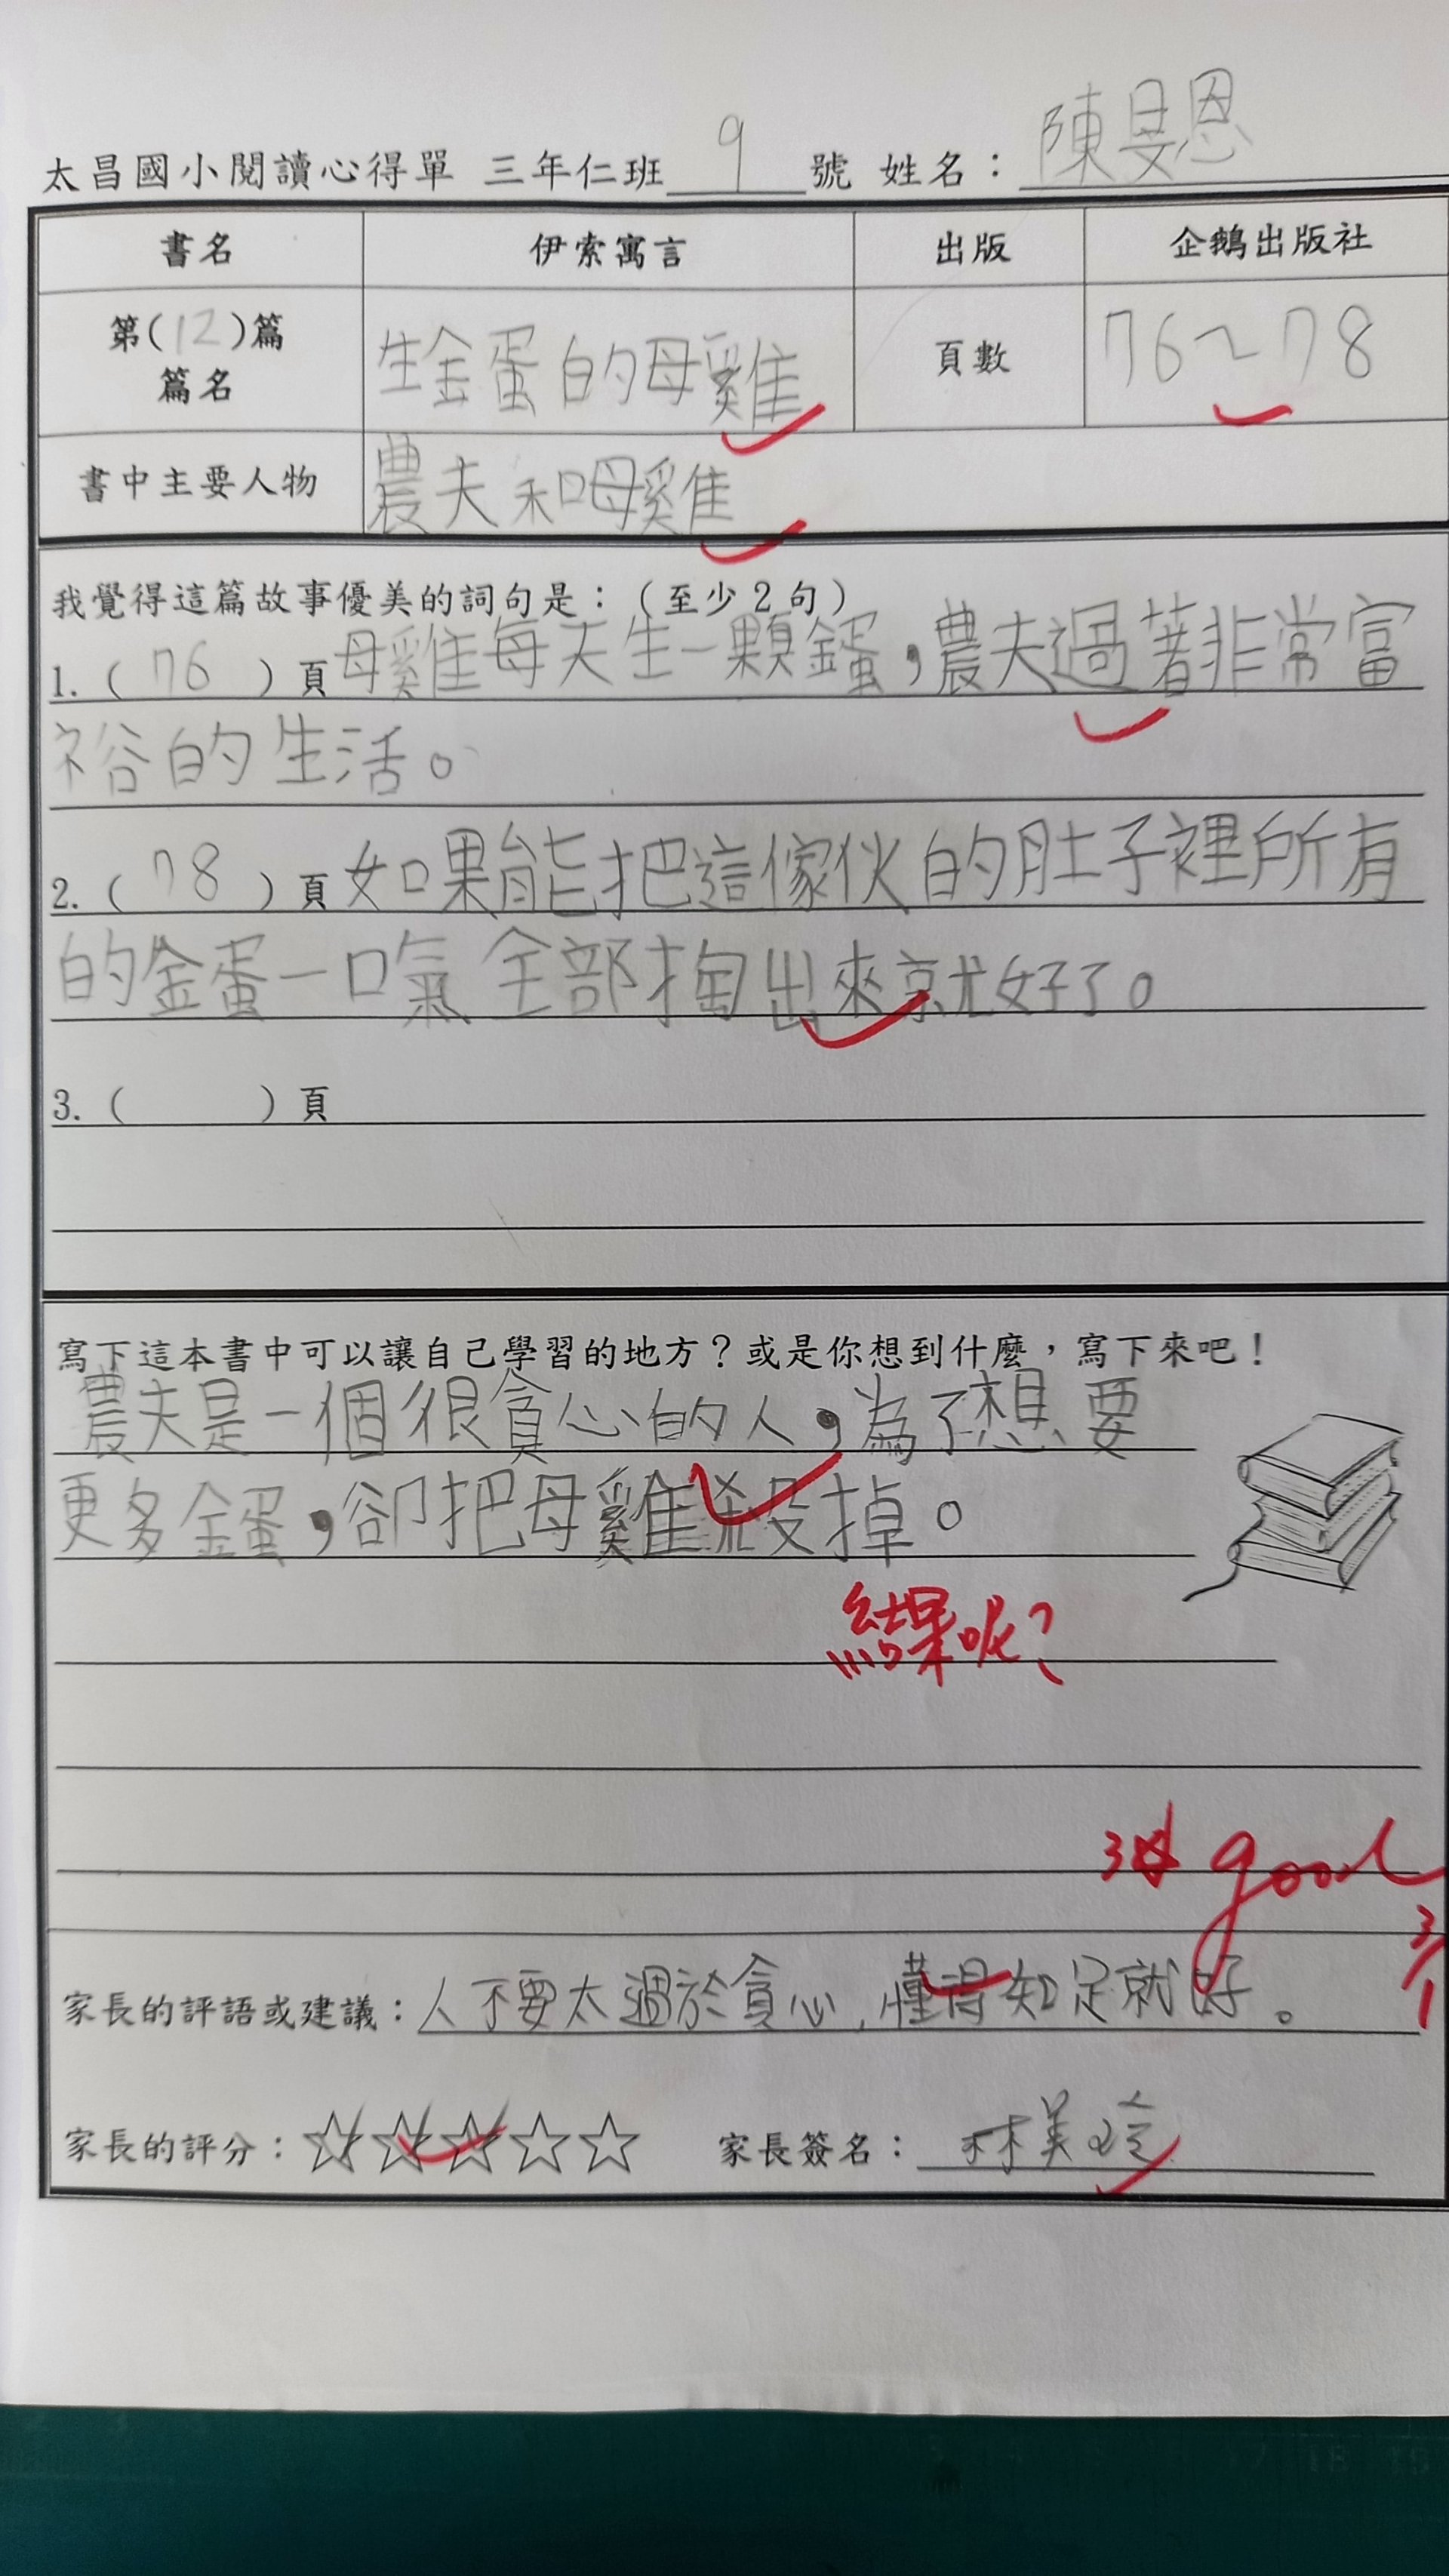 太昌國小閱讀心得單 三年仁班 9 號 姓名：陳旻恩
書名 伊索寓言 出版 企鵝出版社
第(12)篇
篇名 生金蛋的母雞 頁數 76~78
書中主要人物 農夫和母雞
我覺得這篇故事優美的詞句是：（至少2句）
1.（76）頁母雞每天生一顆金蛋，農夫過著非常富
裕的生活。
2.（78）頁如果能把這傢伙的肚子裡所有
的金蛋一口氣全部掏出來就好了。
3.（ ）頁
寫下這本書中可以讓自己學習的地方？或是你想到什麼，寫下來吧！
農夫是一個很貪心的人，為了想要
更多金蛋，卻把母雞殺掉。
結果呢？
3☆ good
3/1
家長的評語或建議：人不要太過於貪心，懂得知足就好。
家長的評分：☆☆☆☆☆ 家長簽名：林美玲